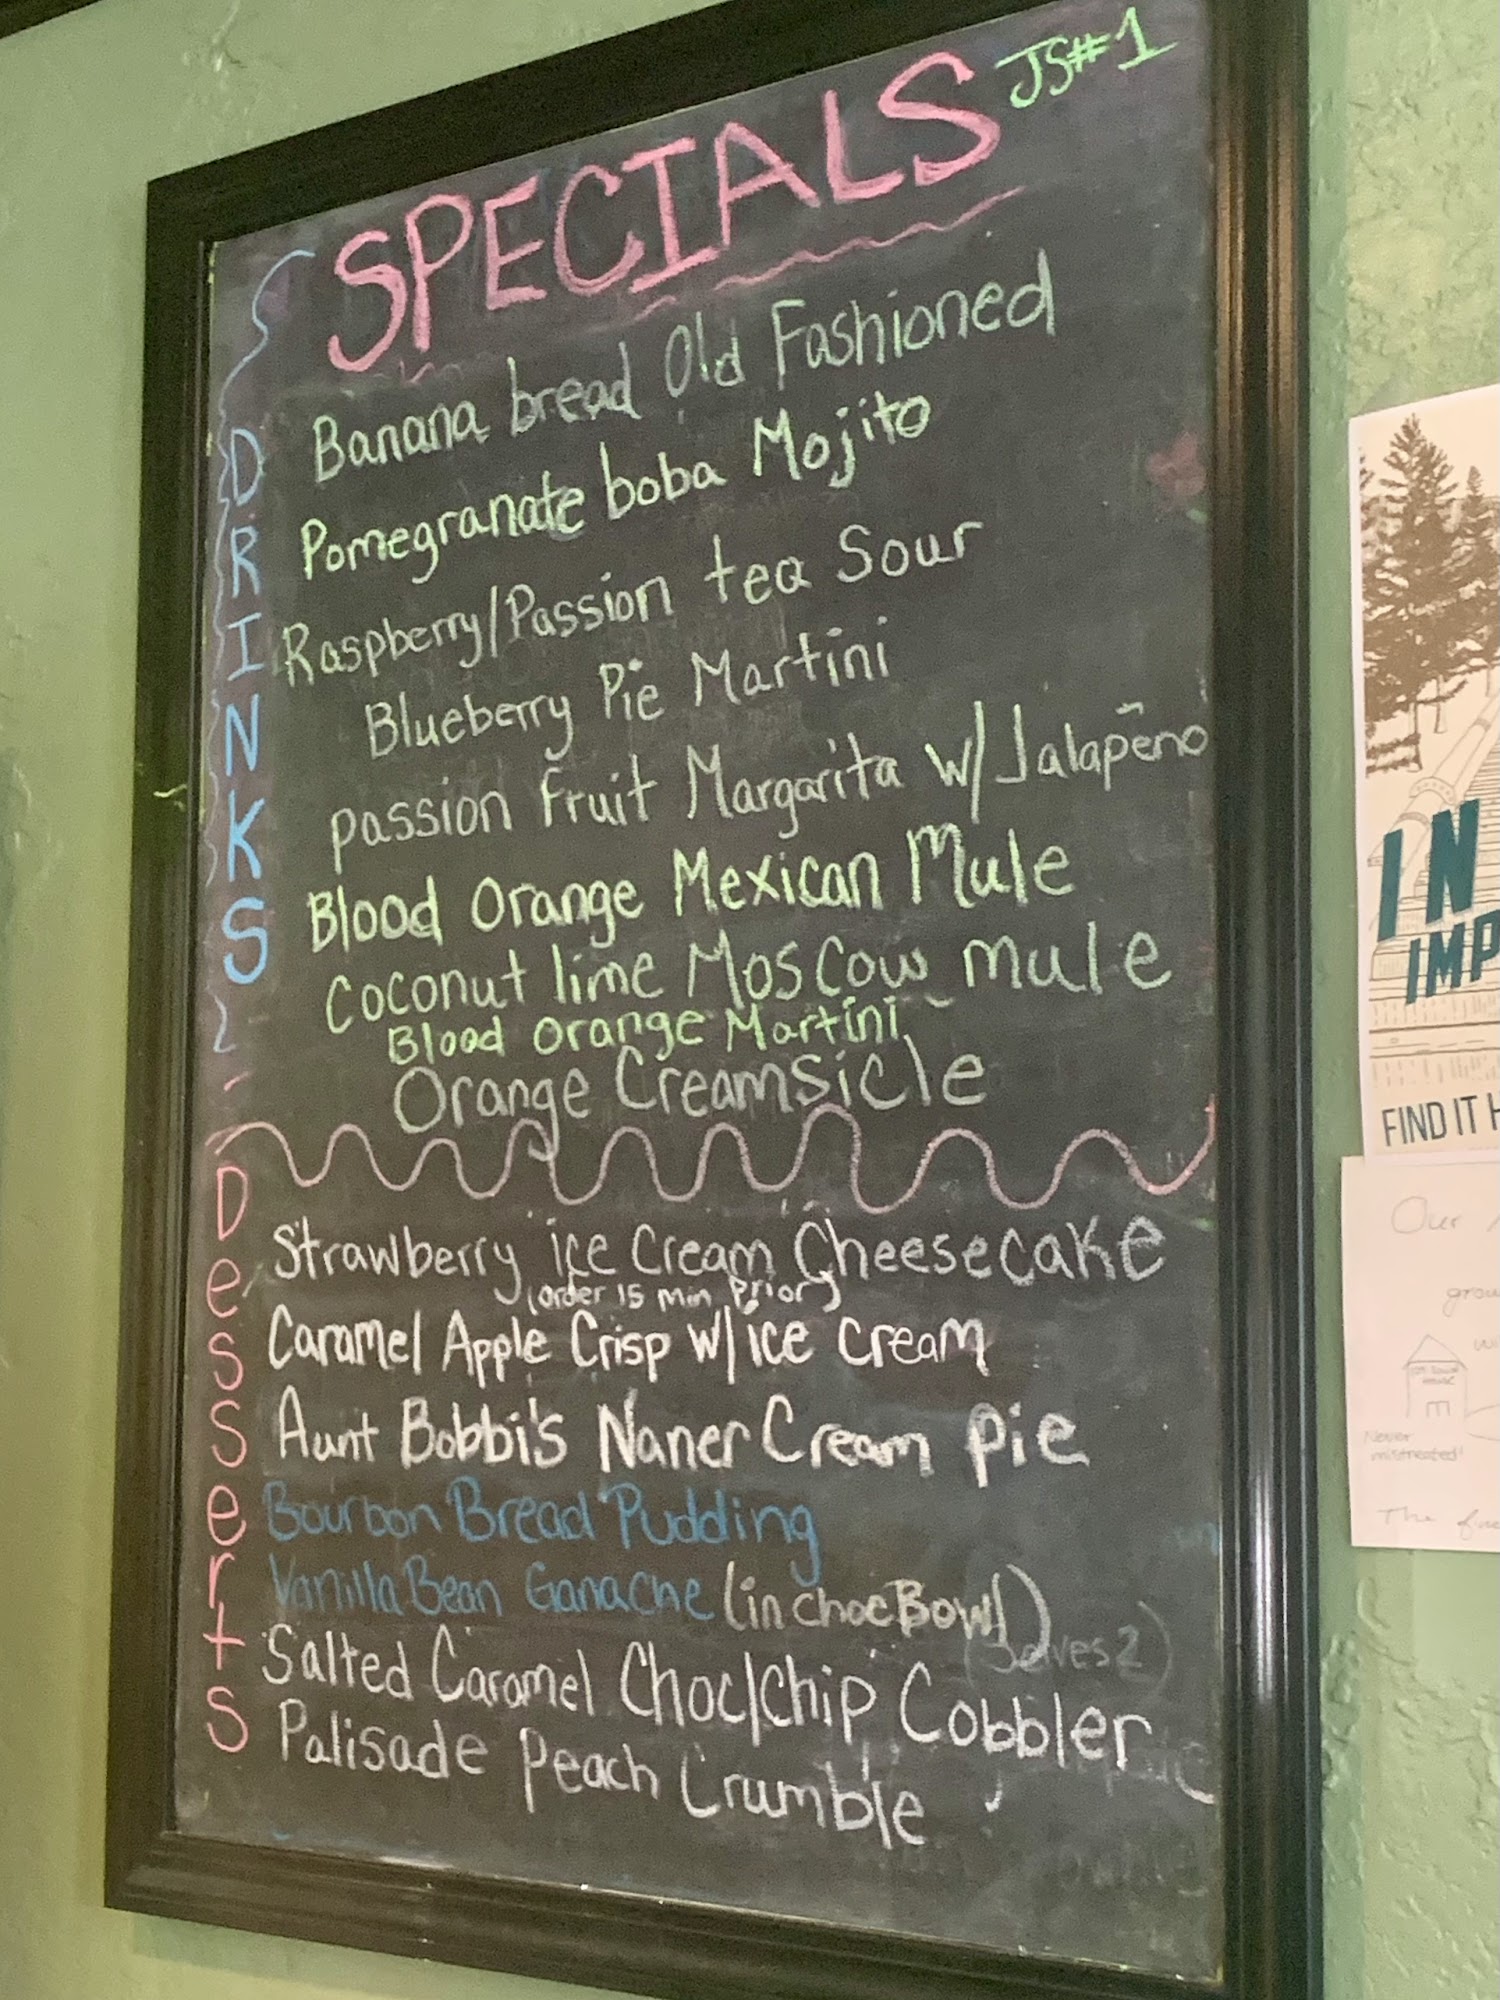 SPECIALS JS#1
DRINKS
Banana bread Old Fashioned
Pomegranate boba Mojito
Raspberry/Passion tea Sour
Blueberry Pie Martini
passion fruit Margarita w/Jalapeño
Blood Orange Mexican Mule
Coconut lime Moscow mule
Blood Orange Martini
Orange Creamsicle
Desserts
Strawberry ice Cream Cheesecake
(order 15 min prior)
Caramel Apple Crisp w/ice cream
Aunt Bobbi's Naner Cream pie
Bourbon Bread Pudding
Vanilla Bean Ganache (in choc Bowl)
(Serves 2)
Salted Caramel Choc/Chip Cobbler
Palisade Peach Crumble
IN
IMP
FIND IT H
Our
grou
wi
HOUSE
Never
mistreated!
The